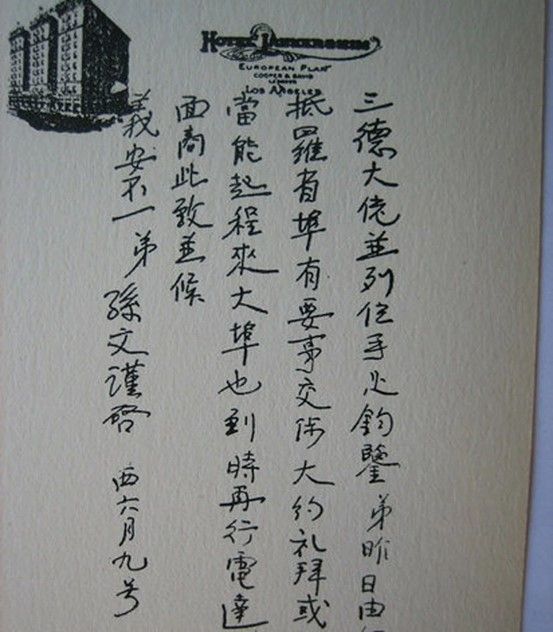 Hotel
European Plan
Los Angeles
三德大佬並列位手足鈞鑒弟昨日由
抵羅省埠有要事交涉大約礼拜或
當能起程來大埠也到時再行電達
面商此致並候
義安不一弟孫文謹啓 西六月九号